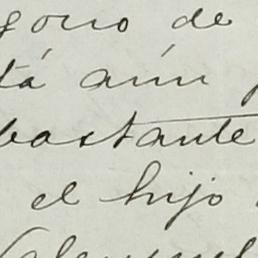 de
tá aún
bastante
el hijo